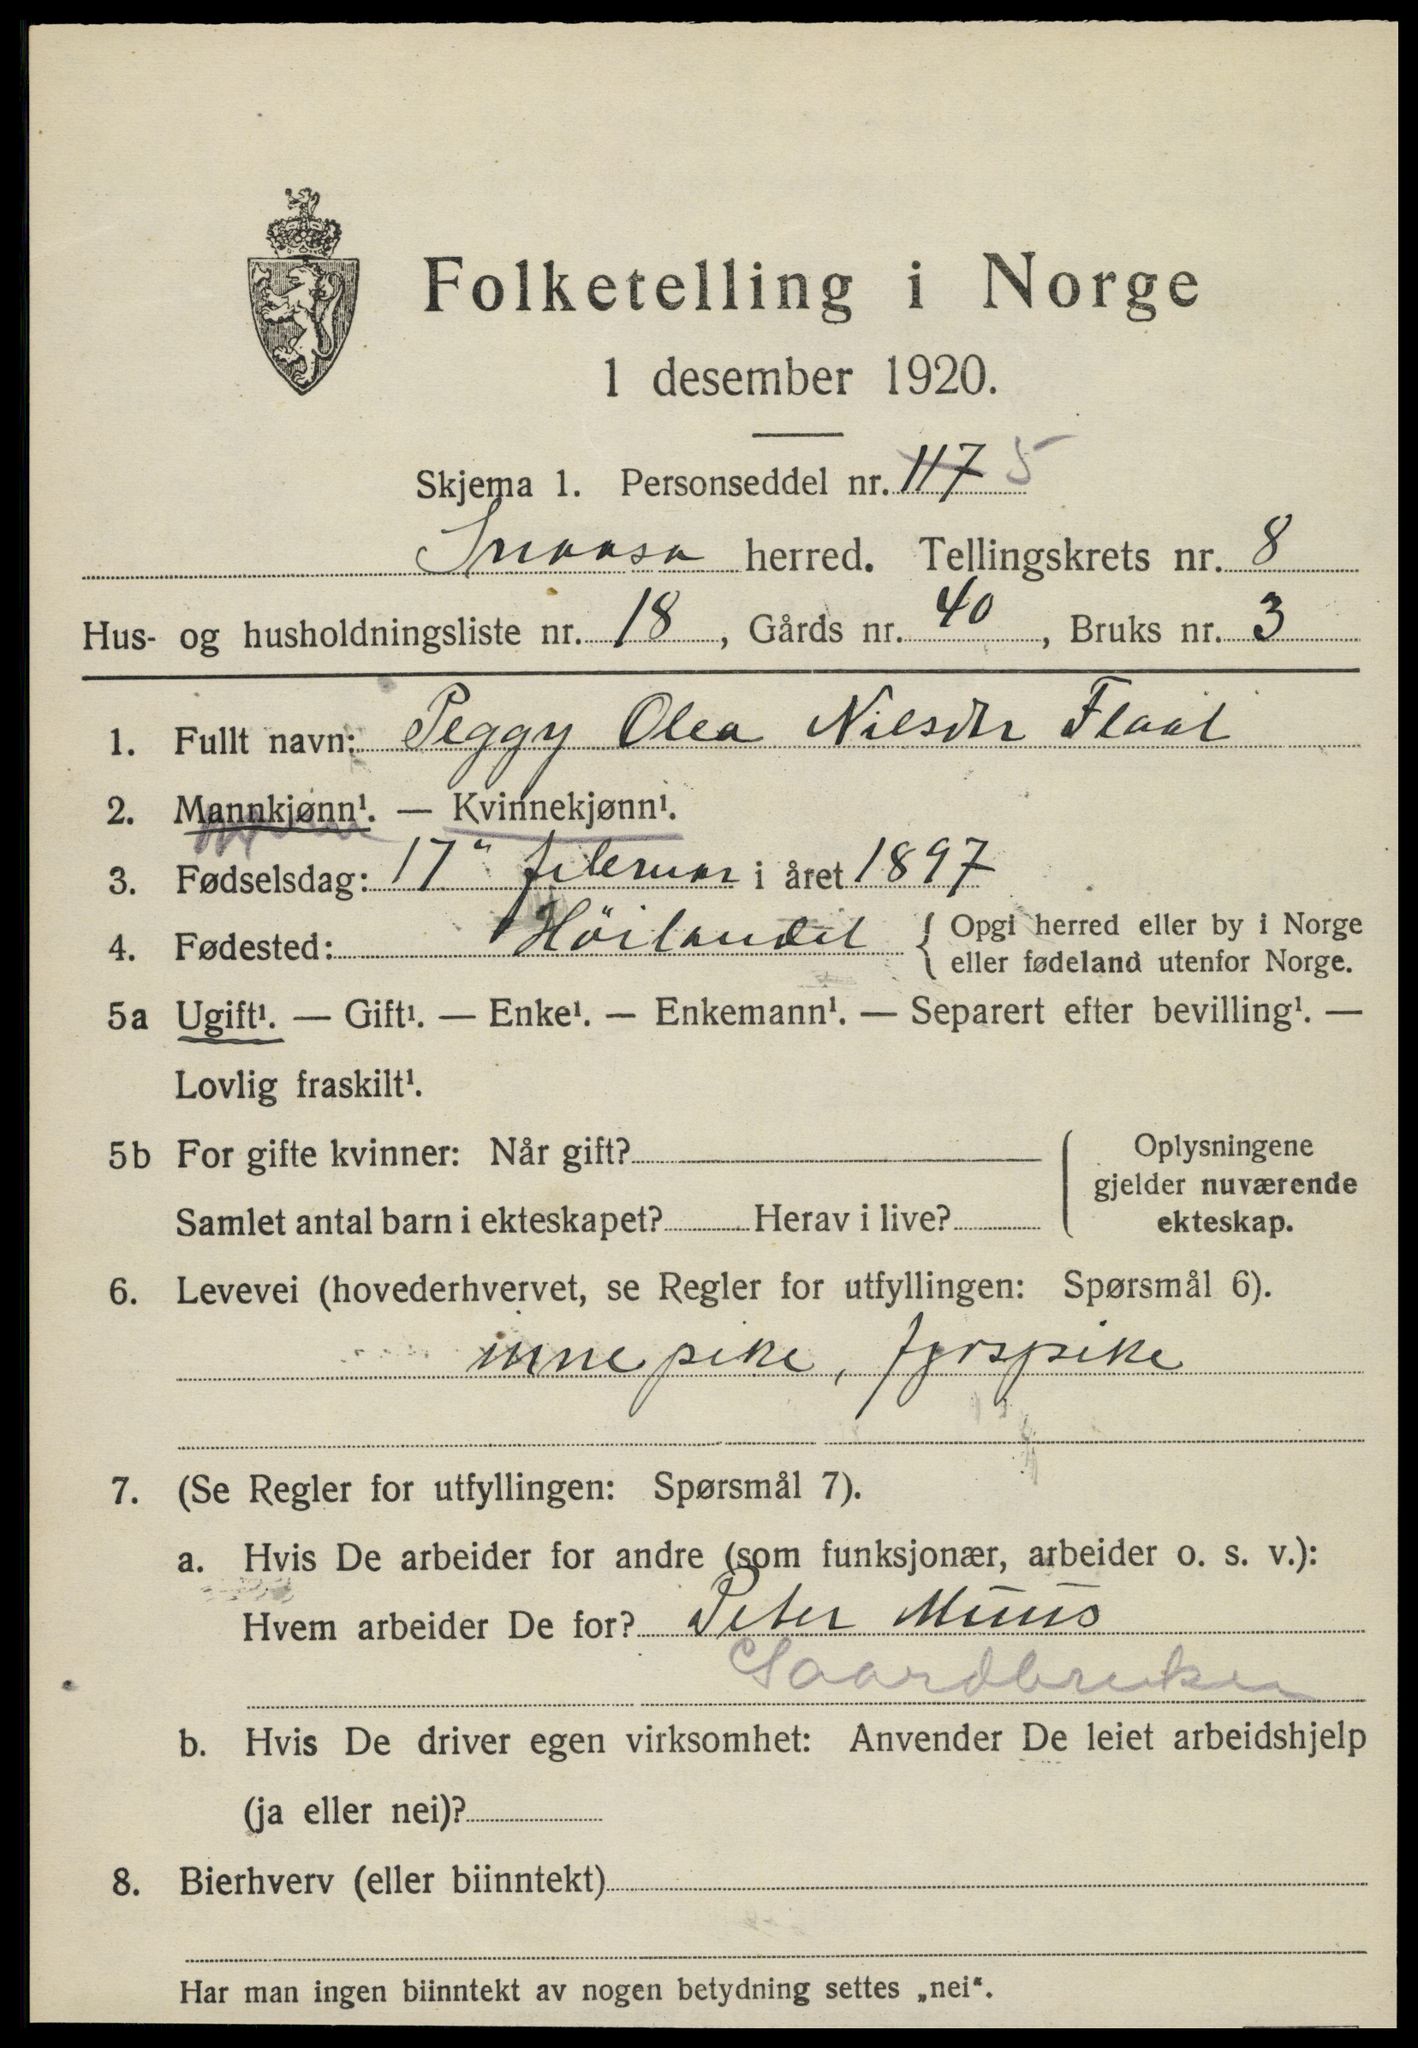 Folketelling i Norge
1 desember 1920.
Skjema 1. Personseddel nr. 117 5
Snaasa herred. Tellingskrets nr. 8
Hus- og husholdningsliste nr. 18, Gårds nr. 40, Bruks nr. 3
1. Fullt navn: Peggy Olea Nilsdtr Flaat
2. Mannkjønn¹. — Kvinnekjønn¹.
3. Fødselsdag: 17" februar i året 1897
4. Fødested: Höilandet { Opgi herred eller by i Norge
eller fødeland utenfor Norge.
5a Ugift¹. — Gift¹. — Enke¹. — Enkemann¹. — Separert efter bevilling¹. —
Lovlig fraskilt¹.
5b For gifte kvinner: Når gift?
Samlet antal barn i ekteskapet? Herav i live?
Oplysningene
gjelder nuværende
ekteskap.
6. Levevei (hovederhvervet, se Regler for utfyllingen: Spørsmål 6).
innepike, fjøspike
7. (Se Regler for utfyllingen: Spørsmål 7).
a. Hvis De arbeider for andre (som funksjonær, arbeider o. s. v.):
Hvem arbeider De for? Peter Muus
Gaardbruker
b. Hvis De driver egen virksomhet: Anvender De leiet arbeidshjelp
(ja eller nei)?
8. Bierhverv (eller biinntekt)
Har man ingen biinntekt av nogen betydning settes „nei“.